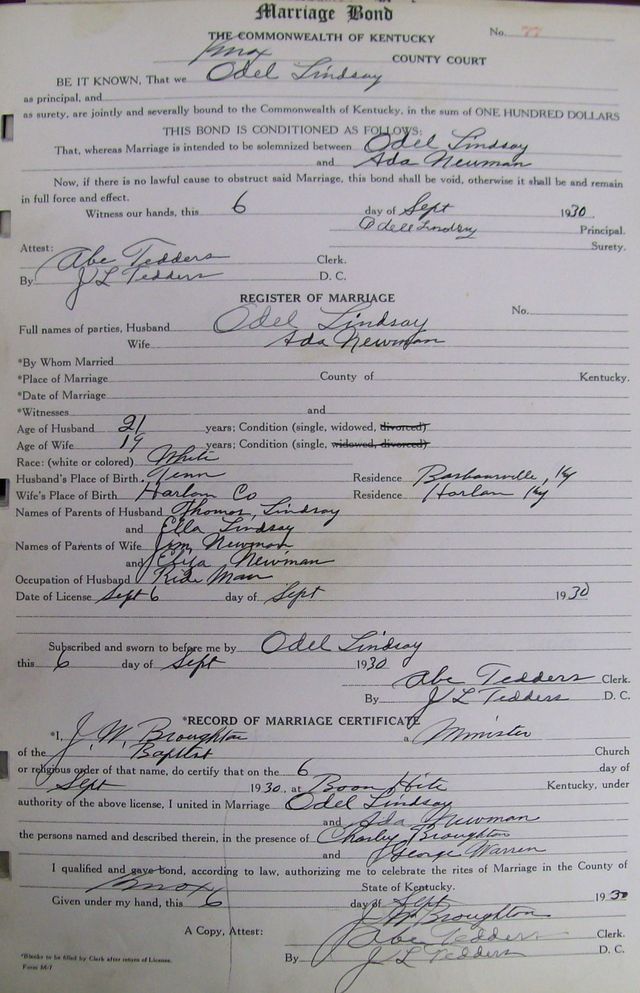 Marriage Bond
No. 77
THE COMMONWEALTH OF KENTUCKY
Knox COUNTY COURT
BE IT KNOWN, That we Odel Lindsay
as principal, and
as surety, are jointly and severally bound to the Commonwealth of Kentucky, in the sum of ONE HUNDRED DOLLARS
THIS BOND IS CONDITIONED AS FOLLOWS:
That, whereas Marriage is intended to be solemnized between Odel Lindsay
and Ada Newman
Now, if there is no lawful cause to obstruct said Marriage, this bond shall be void, otherwise it shall be and remain
in full force and effect.
Witness our hands, this 6 day of Sept 1930.
Odell Lindsay Principal.
Surety.
Attest:
Abe Tedders Clerk.
By J L Tedders D. C.
REGISTER OF MARRIAGE
No.
Full names of parties, Husband Odel Lindsay
Wife Ada Newman
*By Whom Married
*Place of Marriage County of Kentucky.
*Date of Marriage
*Witnesses and
Age of Husband 21 years; Condition (single, widowed, divorced)
Age of Wife 19 years; Condition (single, widowed, divorced)
Race: (white or colored) White
Husband's Place of Birth Tenn Residence Barbourville, Ky
Wife's Place of Birth Harlan Co Residence Harlan Ky
Names of Parents of Husband Thomas Lindsay
and Ella Lindsay
Names of Parents of Wife Jim Newman
and Newman
Occupation of Husband Man
Date of License Sept 6 day of Sept 1930
Subscribed and sworn to before me by Odel Lindsay
this 6 day of Sept 1930
Abe Tedders Clerk.
By J L Tedders D. C.
*RECORD OF MARRIAGE CERTIFICATE
*I, J. W. Broughton a Minister
of the Baptist Church
or religious order of that name, do certify that on the 6 day of
Sept 1930, at Boon Hite Kentucky, under
authority of the above license, I united in Marriage Odel Lindsay
and Ada Newman
the persons named and described therein, in the presence of Charley Broughton
and George Warren
I qualified and gave bond, according to law, authorizing me to celebrate the rites of Marriage in the County of
Knox State of Kentucky.
Given under my hand, this 6 day of Sept 1930
J W Broughton
A Copy, Attest: Abe Tedders Clerk.
By J L Tedders D. C.
*Blanks to be filled by Clerk after return of License.
Form M-7